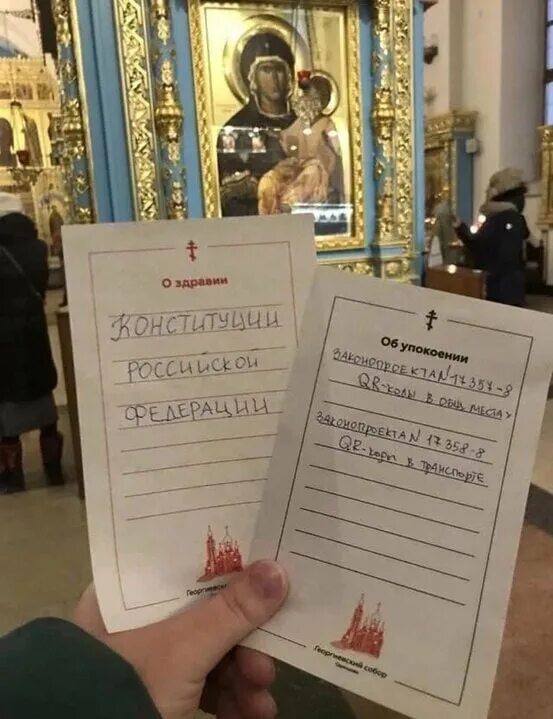 О здравии
КОНСТИТУЦИИ
РОССИЙСКОЙ
ФЕДЕРАЦИИ
Георгиевский
Об упокоении
ЗАКОНОПРОЕКТА N 17357-8
QR-коды в общ. местах
ЗАКОНОПРОЕКТА N 17358-8
QR-коды в транспорте
Георгиевский собор